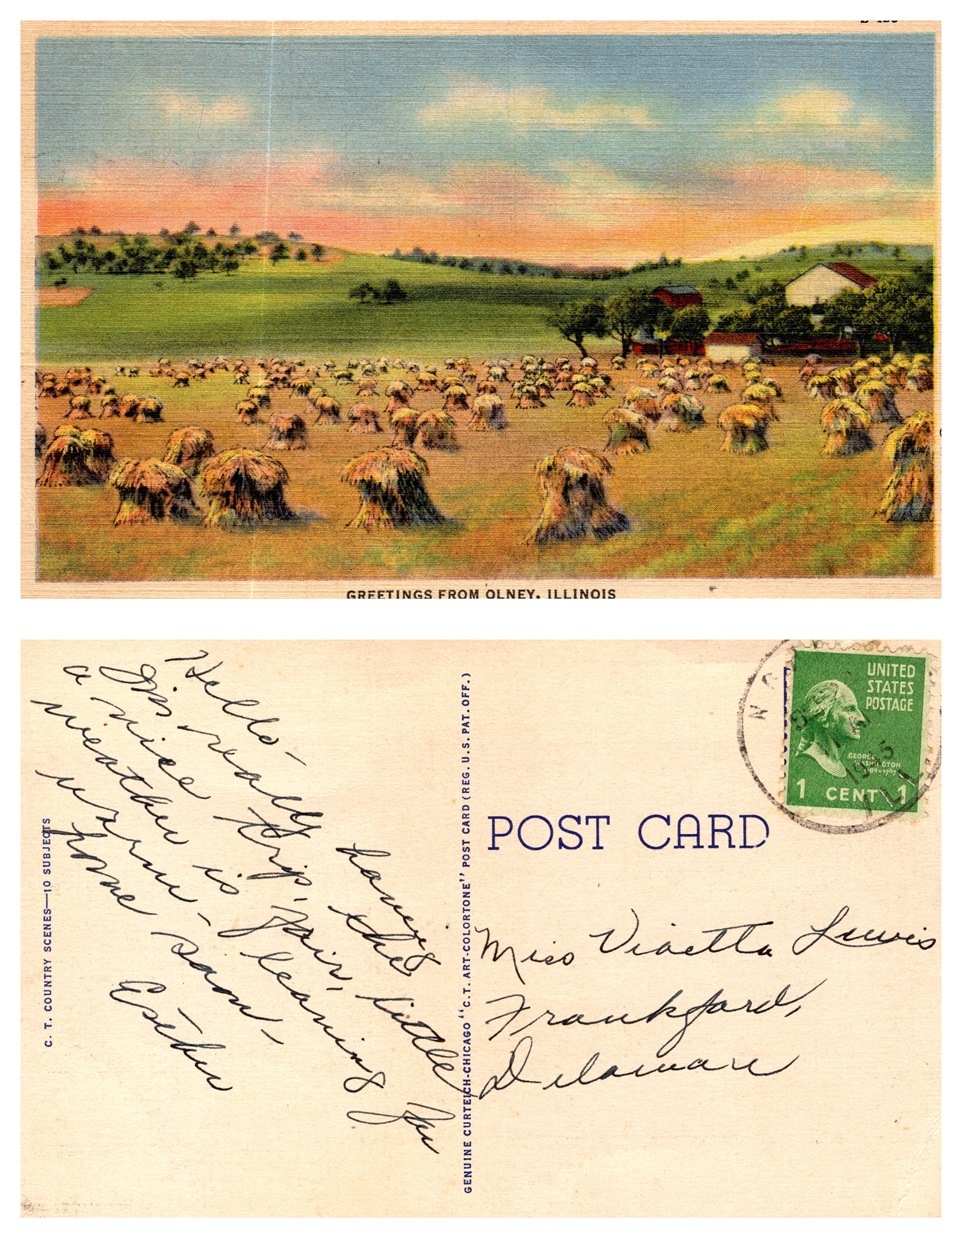 GREETINGS FROM OLNEY, ILLINOIS
Hello-
I'm really having
a nice trip, the
weather is fair, little
warm - leaning for
home soon -
Esther
C. T. COUNTRY SCENES—10 SUBJECTS
GENUINE CURTEICH-CHICAGO "C.T. ART-COLORTONE" POST CARD (REG. U.S. PAT. OFF.)
POST CARD
UNITED
STATES
POSTAGE
GEORGE
WASHINGTON
1789-1797
1 CENT 1
Miss Vioetta Lewis
Frankford,
Delaware